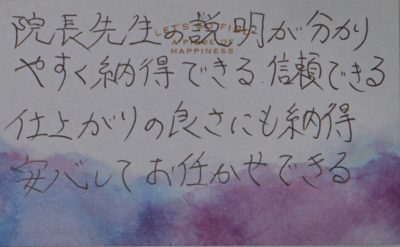 院長先生の説明が分かり
LET'S GO FIND
A PIECE OF
HAPPINESS
やすく納得できる 信頼できる
仕上がりの良さにも納得
安心してお任せできる